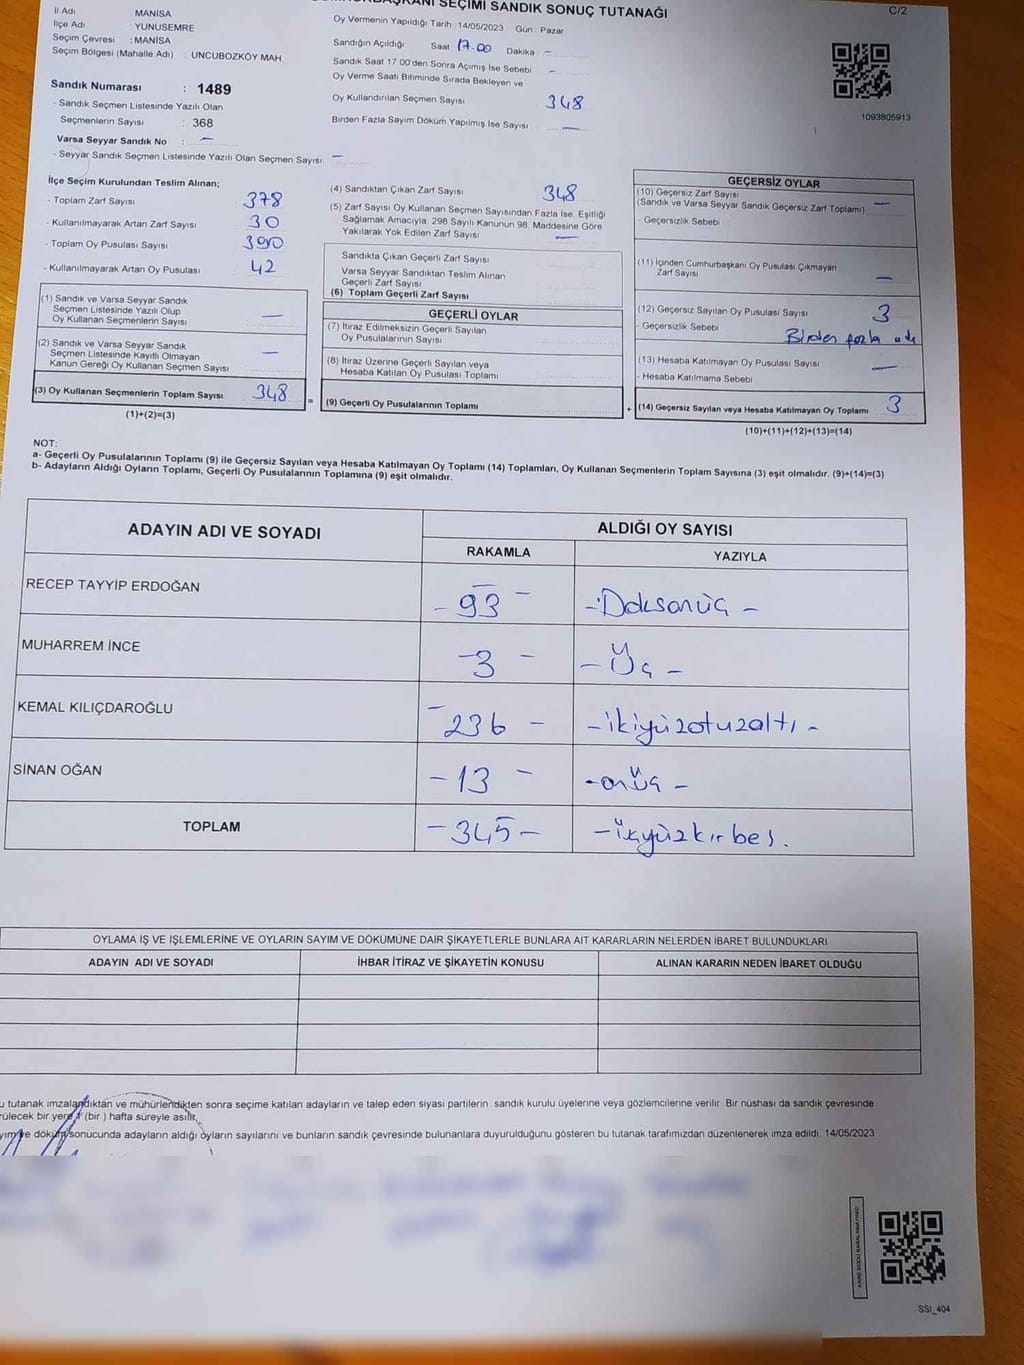 SEÇİMİ SANDIK SONUÇ TUTANAĞI
C/2
İl Adı : MANİSA
İlçe Adı : YUNUSEMRE
Seçim Çevresi : MANİSA
Seçim Bölgesi (Mahalle Adı) : UNCUBOZKÖY MAH.
Oy Vermenin Yapıldığı Tarih : 14/05/2023 Gün : Pazar
Sandığın Açıldığı Saat 17.00 Dakika -
Sandık Saat 17:00'den Sonra Açımış İse Sebebi -
Oy Verme Saati Bitiminde Sırada Bekleyen ve
Oy Kullandırılan Seçmen Sayısı 348
Birden Fazla Sayım Döküm Yapılmış İse Sayısı -
1093805913
Sandık Numarası : 1489
- Sandık Seçmen Listesinde Yazılı Olan
Seçmenlerin Sayısı : 368
Varsa Seyyar Sandık No : -
- Seyyar Sandık Seçmen Listesinde Yazılı Olan Seçmen Sayısı: -
İlçe Seçim Kurulundan Teslim Alınan;
- Toplam Zarf Sayısı 378
- Kullanılmayarak Artan Zarf Sayısı 30
- Toplam Oy Pusulası Sayısı 390
- Kullanılmayarak Artan Oy Pusulası 42
(1) Sandık ve Varsa Seyyar Sandık
Seçmen Listesinde Yazılı Olup
Oy Kullanan Seçmenlerin Sayısı -
(2) Sandık ve Varsa Seyyar Sandık
Seçmen Listesinde Kayıtlı Olmayan
Kanun Gereği Oy Kullanan Seçmen Sayısı -
(3) Oy Kullanan Seçmenlerin Toplam Sayısı 348 =
(1)+(2)=(3)
(4) Sandıktan Çıkan Zarf Sayısı 348
(5) Zarf Sayısı Oy Kullanan Seçmen Sayısından Fazla İse, Eşitliği
Sağlamak Amacıyla, 298 Sayılı Kanunun 98. Maddesine Göre
Yakılarak Yok Edilen Zarf Sayısı -
Sandıkta Çıkan Geçerli Zarf Sayısı
Varsa Seyyar Sandıktan Teslim Alınan
Geçerli Zarf Sayısı
(6) Toplam Geçerli Zarf Sayısı
GEÇERLİ OYLAR
(7) İtiraz Edilmeksizin Geçerli Sayılan
Oy Pusulalarının Sayısı
(8) İtiraz Üzerine Geçerli Sayılan veya
Hesaba Katılan Oy Pusulası Toplamı
(9) Geçerli Oy Pusulalarının Toplamı +
GEÇERSİZ OYLAR
(10) Geçersiz Zarf Sayısı
(Sandık ve Varsa Seyyar Sandık Geçersiz Zarf Toplamı) -
- Geçersizlik Sebebi
(11) İçinden Cumhurbaşkanı Oy Pusulası Çıkmayan
Zarf Sayısı -
(12) Geçersiz Sayılan Oy Pusulası Sayısı 3
- Geçersizlik Sebebi Birden fazla
(13) Hesaba Katılmayan Oy Pusulası Sayısı -
- Hesaba Katılmama Sebebi
(14) Geçersiz Sayılan veya Hesaba Katılmayan Oy Toplamı 3
(10)+(11)+(12)+(13)=(14)
NOT:
a- Geçerli Oy Pusulalarının Toplamı (9) ile Geçersiz Sayılan veya Hesaba Katılmayan Oy Toplamı (14) Toplamları, Oy Kullanan Seçmenlerin Toplam Sayısına (3) eşit olmalıdır. (9)+(14)=(3)
b- Adayların Aldığı Oyların Toplamı, Geçerli Oy Pusulalarının Toplamına (9) eşit olmalıdır.
ADAYIN ADI VE SOYADI
ALDIĞI OY SAYISI
RAKAMLA
YAZIYLA
RECEP TAYYİP ERDOĞAN - 93 - - Doksanüç -
MUHARREM İNCE - 3 - - Üç -
KEMAL KILIÇDAROĞLU - 236 - - ikiyüzotuzaltı -
SİNAN OĞAN - 13 - - onüç -
TOPLAM - 345 - - üçyüzkırbeş.
OYLAMA İŞ VE İŞLEMLERİNE VE OYLARIN SAYIM VE DÖKÜMÜNE DAİR ŞİKAYETLERLE BUNLARA AİT KARARLARIN NELERDEN İBARET BULUNDUKLARI
ADAYIN ADI VE SOYADI
İHBAR İTİRAZ VE ŞİKAYETİN KONUSU
ALINAN KARARIN NEDEN İBARET OLDUĞU
u tutanak imzalandıktan ve mühürlendikten sonra seçime katılan adayların ve talep eden siyasi partilerin sandık kurulu üyelerine veya gözlemcilerine verilir. Bir nüshası da sandık çevresinde
rülecek bir yere 1 (bir ) hafta süreyle asılır.
yım ve döküm sonucunda adayların aldığı oyların sayılarını ve bunların sandık çevresinde bulunanlara duyurulduğunu gösteren bu tutanak tarafımızdan düzenlenerek imza edildi. 14/05/2023
KARE KODU KARALAMAYINIZ!
SSI_404